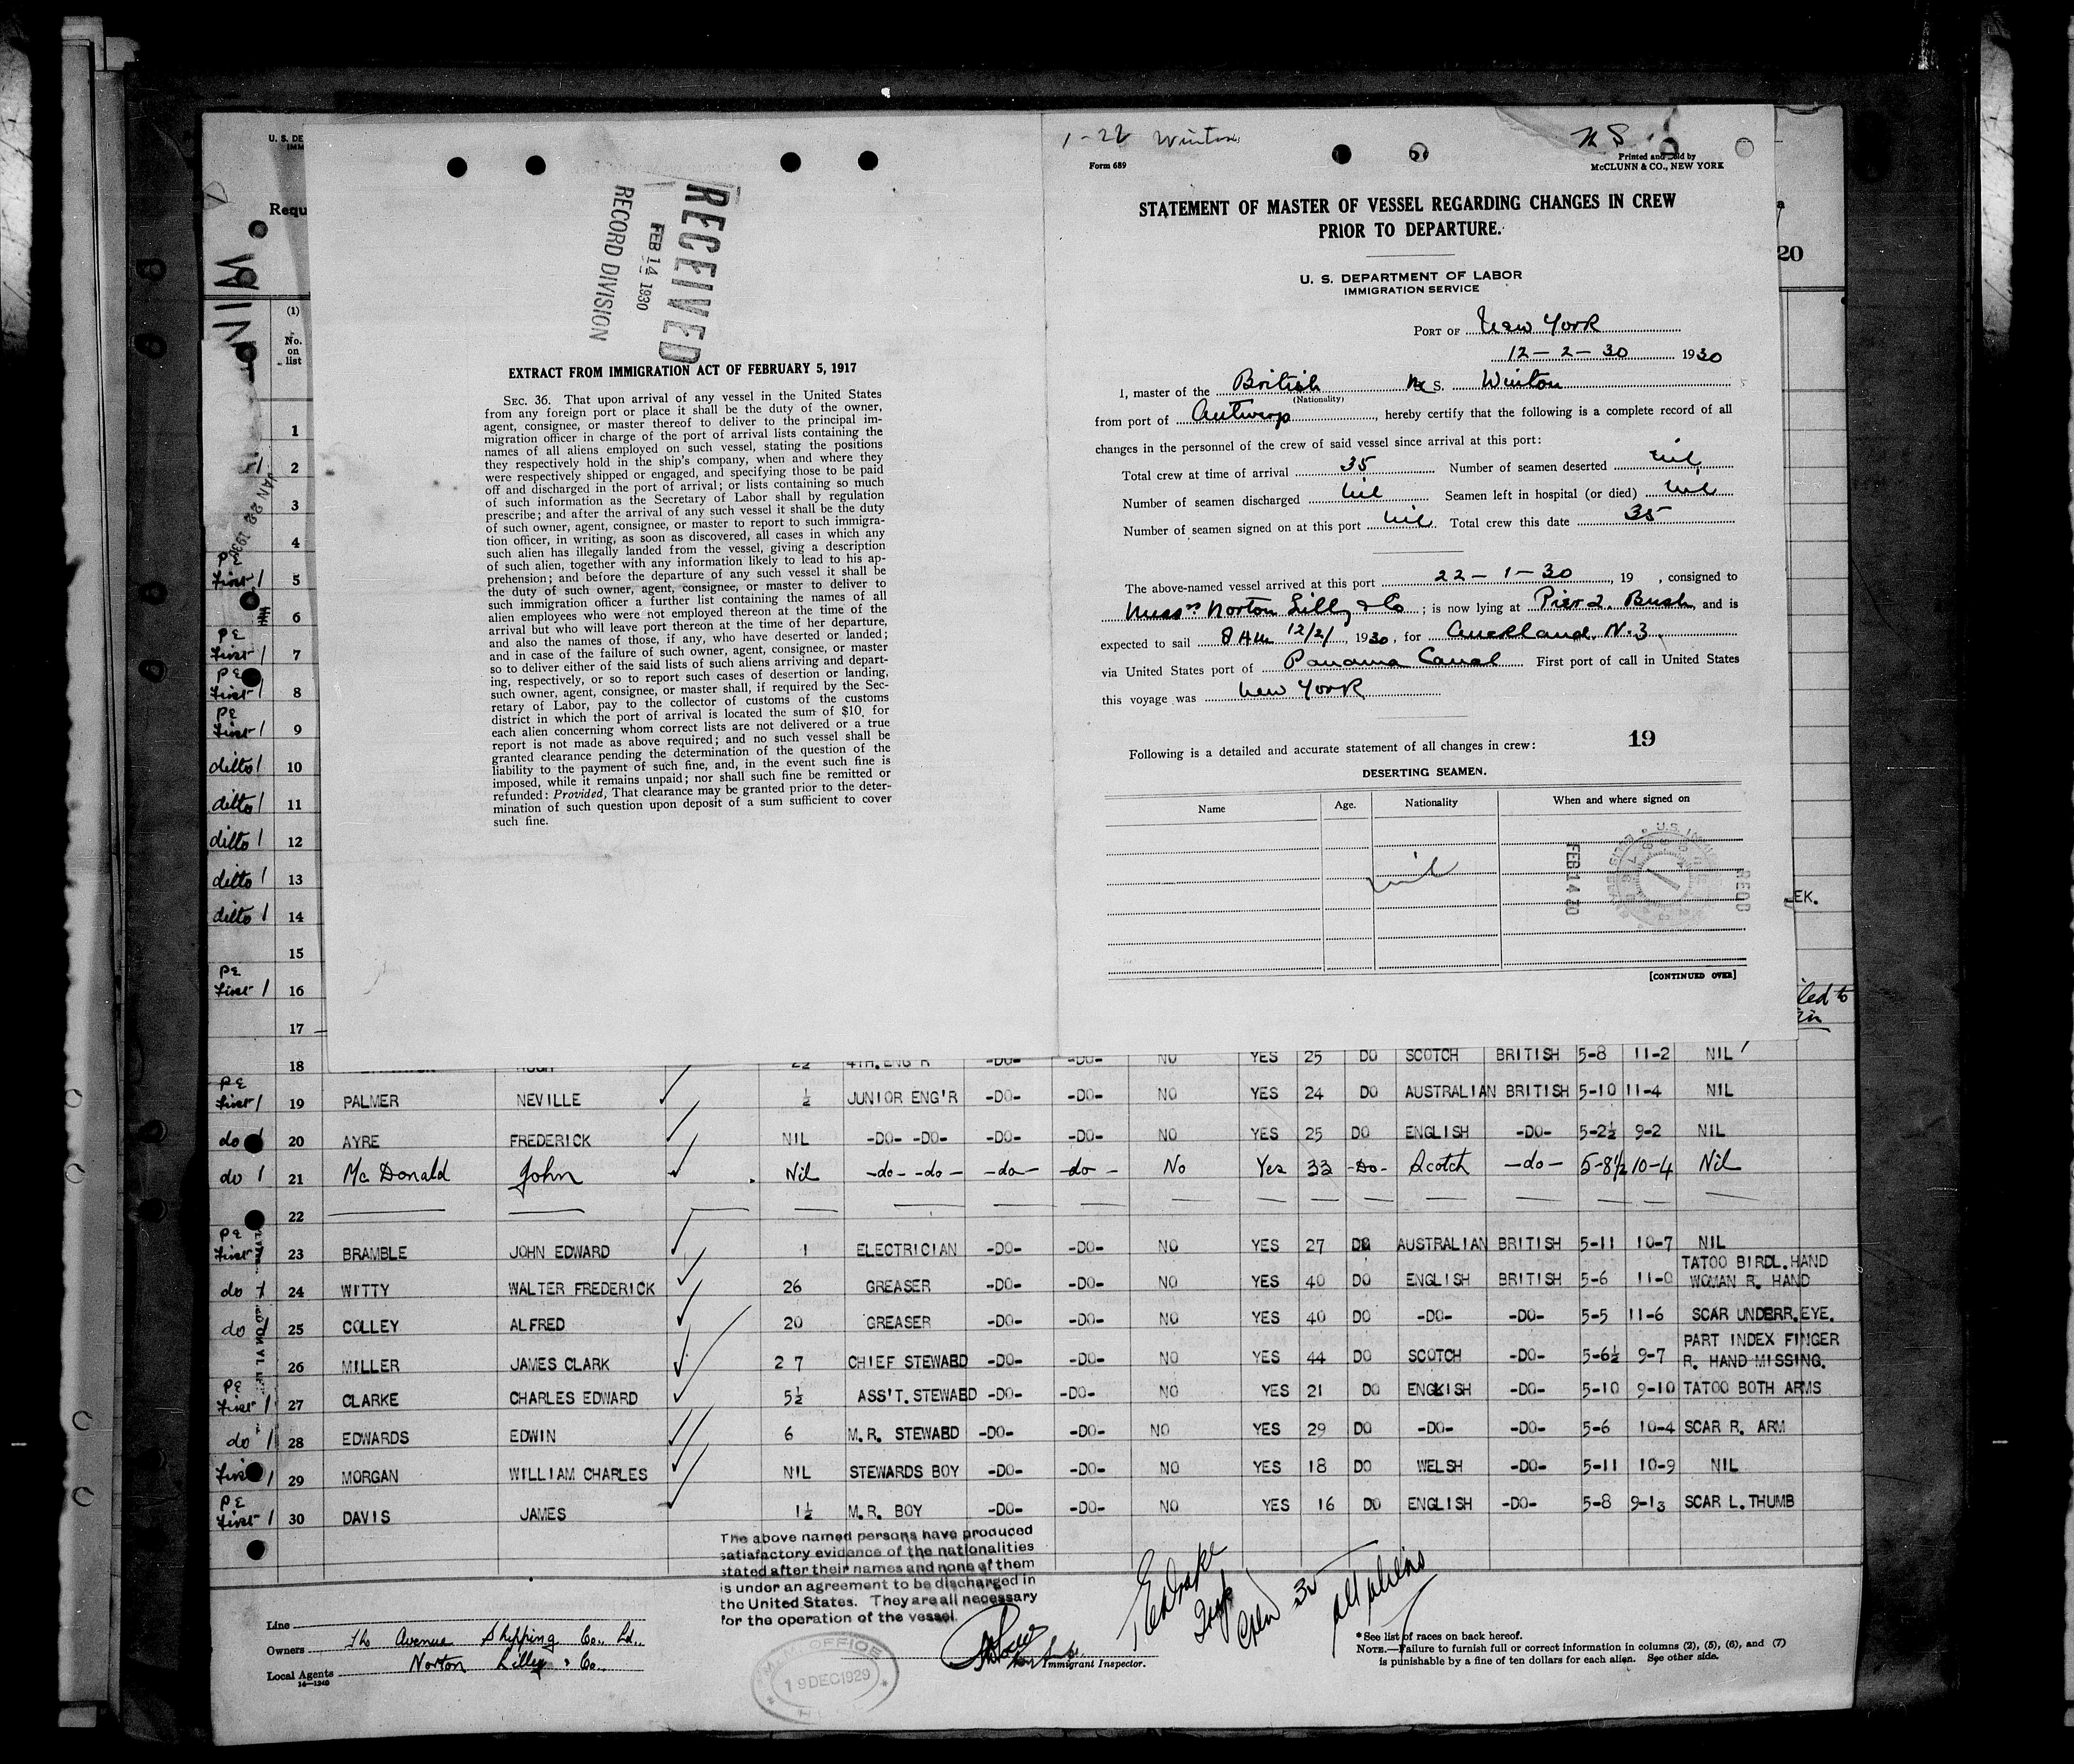 1-22 Winton
Form 689
Printed and Sold by
McCLUNN & CO., NEW YORK
STATEMENT OF MASTER OF VESSEL REGARDING CHANGES IN CREW
PRIOR TO DEPARTURE.
U. S. DEPARTMENT OF LABOR
IMMIGRATION SERVICE
PORT OF New York
12-2-30 1930
I, master of the British M S. Winton
(Nationality)
from port of Antwerp, hereby certify that the following is a complete record of all
changes in the personnel of the crew of said vessel since arrival at this port:
Total crew at time of arrival 35 Number of seamen deserted nil
Number of seamen discharged nil Seamen left in hospital (or died) nil
Number of seamen signed on at this port nil. Total crew this date 35
The above-named vessel arrived at this port 22-1-30, 19 , consigned to
Messrs Norton Lilly & Co; is now lying at Pier 2. Bush and is
expected to sail 8 AM 12/2/, 1930, for Auckland. N.Z.
via United States port of Panama Canal First port of call in United States
this voyage was New York
Following is a detailed and accurate statement of all changes in crew: 19
DESERTING SEAMEN.
Name Age. Nationality When and where signed on
nil
FEB 14 30
REC'D
[CONTINUED OVER]
RECEIVED
FEB 14 1930
RECORD DIVISION
EXTRACT FROM IMMIGRATION ACT OF FEBRUARY 5, 1917
SEC. 36. That upon arrival of any vessel in the United States
from any foreign port or place it shall be the duty of the owner,
agent, consignee, or master thereof to deliver to the principal im-
migration officer in charge of the port of arrival lists containing the
names of all aliens employed on such vessel, stating the positions
they respectively hold in the ship's company, when and where they
were respectively shipped or engaged, and specifying those to be paid
off and discharged in the port of arrival; or lists containing so much
of such information as the Secretary of Labor shall by regulation
prescribe; and after the arrival of any such vessel it shall be the duty
of such owner, agent, consignee, or master to report to such immigra-
tion officer, in writing, as soon as discovered, all cases in which any
such alien has illegally landed from the vessel, giving a description
of such alien, together with any information likely to lead to his ap-
prehension; and before the departure of any such vessel it shall be
the duty of such owner, agent, consignee, or master to deliver to
such immigration officer a further list containing the names of all
alien employees who were not employed thereon at the time of the
arrival but who will leave port thereon at the time of her departure,
and also the names of those, if any, who have deserted or landed;
and in case of the failure of such owner, agent, consignee, or master
so to deliver either of the said lists of such aliens arriving and depart-
ing, respectively, or so to report such cases of desertion or landing,
such owner, agent, consignee, or master shall, if required by the Sec-
retary of Labor, pay to the collector of customs of the customs
district in which the port of arrival is located the sum of $10 for
each alien concerning whom correct lists are not delivered or a true
report is not made as above required; and no such vessel shall be
granted clearance pending the determination of the question of the
liability to the payment of such fine, and, in the event such fine is
imposed, while it remains unpaid; nor shall such fine be remitted or
refunded: Provided, That clearance may be granted prior to the deter-
mination of such question upon deposit of a sum sufficient to cover
such fine.
U. S. DE
IMM
Requ
WIN
20
(1)
No.
on
list
1
2
JAN 22 1930
3
4
PE First 5
6
PE First 7
PE First 8
PE First 9
ditto 10
ditto 11
ditto 12
ditto 13
ditto 14
EK.
15
PE First 16
led to
17
18 4TH. ENG'R -DO- -DO- NO YES 25 DO SCOTCH BRITISH 5-8 11-2 NIL
PE First 19 PALMER NEVILLE ½ JUNIOR ENG'R -DO- -DO- NO YES 24 DO AUSTRALIAN BRITISH 5-10 11-4 NIL
do 20 AYRE FREDERICK NIL -DO- -DO- -DO- -DO- NO YES 25 DO ENGLISH -DO- 5-2½ 9-2 NIL
do 21 McDonald John Nil -do- -do- -do- -do- No Yes 33 -Do- Scotch -do- 5-8½ 10-4 Nil
22
PE First 23 BRAMBLE JOHN EDWARD 1 ELECTRICIAN -DO- -DO- NO YES 27 DO AUSTRALIAN BRITISH 5-11 10-7 NIL
do 24 WITTY WALTER FREDERICK 26 GREASER -DO- -DO- NO YES 40 DO ENGLISH BRITISH 5-6 11-0 TATOO BIRDL.HAND WOMAN R. HAND
do 25 COLLEY ALFRED 20 GREASER -DO- -DO- NO YES 40 DO -DO- -DO- 5-5 11-6 SCAR UNDERR.EYE.
26 MILLER JAMES CLARK 2 7 CHIEF STEWARD -DO- -DO- NO YES 44 DO SCOTCH -DO- 5-6½ 9-7 PART INDEX FINGER R. HAND MISSING.
PE First 27 CLARKE CHARLES EDWARD 5½ ASS'T. STEWARD -DO- -DO- NO YES 21 DO ENGLISH -DO- 5-10 9-10 TATOO BOTH ARMS
do 28 EDWARDS EDWIN 6 M.R. STEWARD -DO- -DO- NO YES 29 DO -DO- -DO- 5-6 10-4 SCAR R. ARM
First 29 MORGAN WILLIAM CHARLES NIL STEWARDS BOY -DO- -DO- NO YES 18 DO WELSH -DO- 5-11 10-9 NIL
PE First 30 DAVIS JAMES 1½ M.R. BOY -DO- -DO- NO YES 16 DO ENGLISH -DO- 5-8 9-13 SCAR L.THUMB
The above named persons have produced
satisfactory evidence of the nationalities
stated after their names and none of them
is under an agreement to be discharged in
the United States. They are all necessary
for the operation of the vessel.
Line
Owners The Avenue Shipping Co. Ld.
Local Agents Norton Lilly & Co.
14-1240
OFFICE
19 DEC 1929
Immigrant Inspector.
all aliens
*See list of races on back hereof.
NOTE.—Failure to furnish full or correct information in columns (2), (5), (6), and (7)
is punishable by a fine of ten dollars for each alien. See other side.